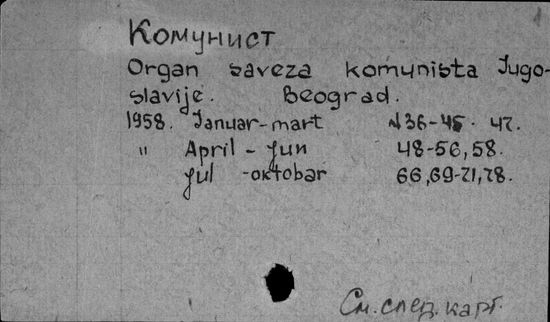 Комунист
Organ saveza komunista Jugo-
slavije. Beograd.
1958. Januar-mart № 36-45. 47.
" April - Jun 48-56, 58.
Jul - oktobar 66, 69-71, 78.
См. след. карт.